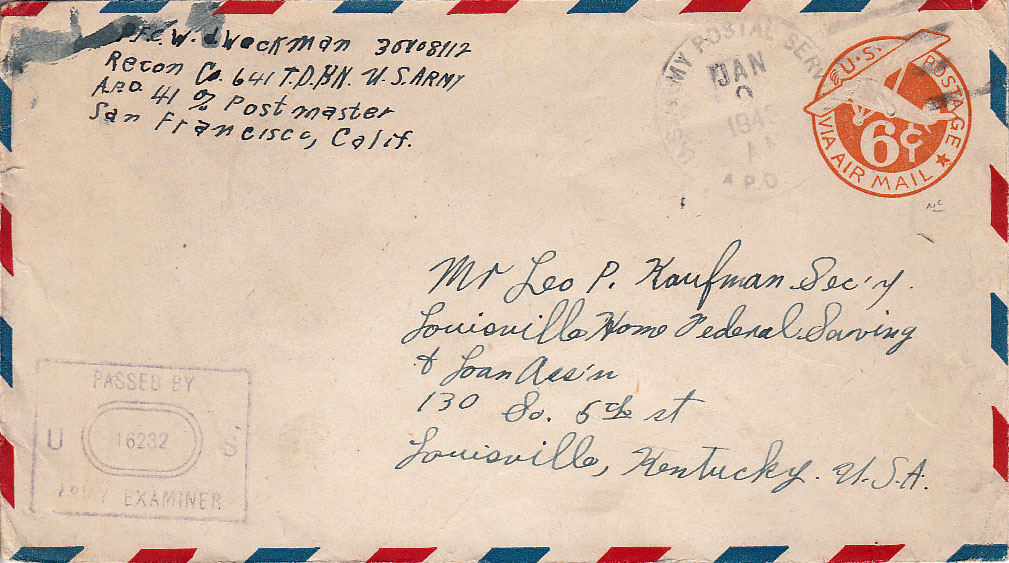 Pfc. W. J. Weckman 35408112
Recon Co. 641 T.D.BN. U.S. ARMY
A.P.O. 41 % Postmaster
San Francisco, Calif.
U.S. ARMY POSTAL SERVICE
JAN
1943
A.P.O.
U.S. POSTAGE
6¢
VIA AIR MAIL
Mr Leo P. Kaufman Sec'y.
Louisville Home Federal Saving
& Loan Ass'n
130 So. 5th st
Louisville, Kentucky. U.S.A.
PASSED BY
U 16232 S
ARMY EXAMINER